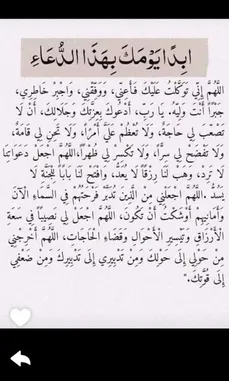 ابدأ يومك بهذا الدُّعاءِ
اللَّهُمَّ إِنِّي تَوَكَّلْتُ عَلَيْكَ فَأَعِنِّي، وَوَفِّقْنِي، وَاجْبُرْ خَاطِرِي،
جَبْرًا أَنْتَ وَلِيُّهُ، يَا رَبِّ، أَدْعُوكَ بِعِزَّتِكَ وَجَلَالِكَ، أَنْ لَا
تَصْعَبَ لِي حَاجَةٌ، وَلَا تَعْظُمَ عَلَيَّ أَمْرًا، وَلَا تَحْنِ لِي قَامَةً،
وَلَا تَفْضَحْ لِي سِرًّا، وَلَا تَكْسِرْ لِي ظَهْرًا،اللَّهُمَّ اجْعَلْ دَعَوَاتِنَا
لَا تُرَدُّ، وَهَبْ لَنَا رِزْقًا لَا يُعَدُّ، وَافْتَحْ لَنَا بَابًا لِلْجَنَّةِ لَا
يُسَدُّ .اللَّهُمَّ اجْعَلْنِي مِنَ الَّذِينَ تُدَبَّرُ فَرْحَتُهُمْ فِي السَّمَاءِ الْآنَ
وَأَمَانِيهِمْ أَوْشَكَتْ أَنْ تَكُونَ، اللَّهُمَّ اجْعَلْ لِي نَصِيبًا فِي سَعَةِ
الْأَرْزَاقِ وَتَيْسِيرِ الْأَحْوَالِ وَقَضَاءِ الْحَاجَاتِ، اللَّهُمَّ أَخْرِجْنِي
مِنْ حَوْلِي إِلَى حَوْلِكَ وَمِنْ تَدْبِيرِي إِلَى تَدْبِيرِكَ وَمِنْ ضَعْفِي
إِلَى قُوَّتِكَ."